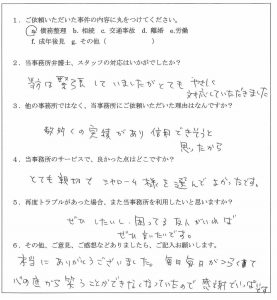 1．ご依頼いただいた事件の内容に丸をつけてください。
ⓐ 債務整理 b. 相続 c. 交通事故 d. 離婚 e. 労働
f. 成年後見 g. その他（　　　　）
2．当事務所弁護士、スタッフの対応はいかがでしたか？
緊張していましたがとてもやさしく
対応していただきました
3．他の事務所ではなく、当事務所にご依頼いただいた理由はなんですか？
数多くの実績があり信用できそうと
思ったから
4．当事務所のサービスで、良かった点はどこですか？
とても親切で 様を選んでよかったです。
5．再度トラブルがあった場合、また当事務所を利用したいと思いますか？
ぜひしたいし、困ってる友人がいれば
ぜひ
6．その他、ご意見、ご感想などありましたら、ご記入お願いします。
本当にありがとうございました。毎日毎日がつらくて
心の底から笑うことができなくなっていたので感謝でいっぱいです